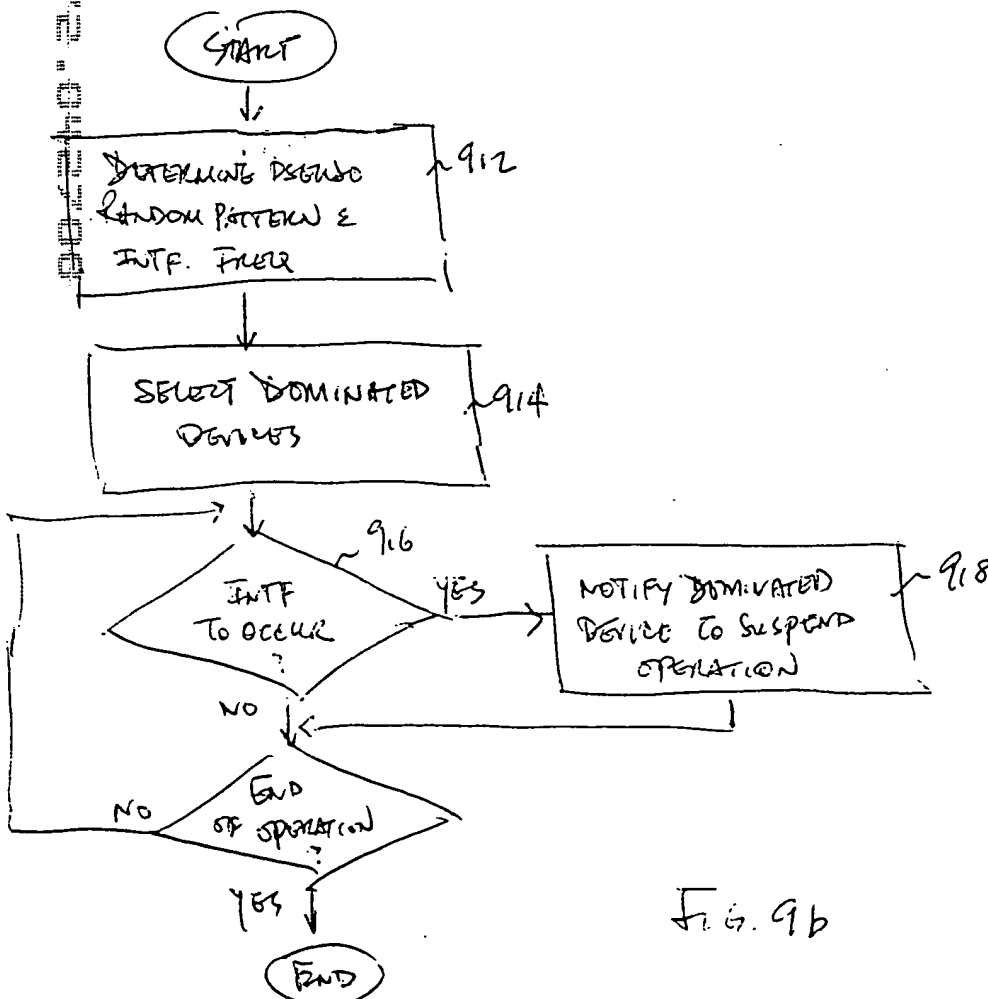 START
DETERMINE PSEUDO
RANDOM PATTERN &
INTF. FREQ
912
SELECT DOMINATED
DEVICES
914
INTF
TO OCCUR
?
916
YES
NOTIFY DOMINATED
DEVICE TO SUSPEND
OPERATION
918
NO
END
OF OPERATION
?
NO
YES
END
FIG. 9b